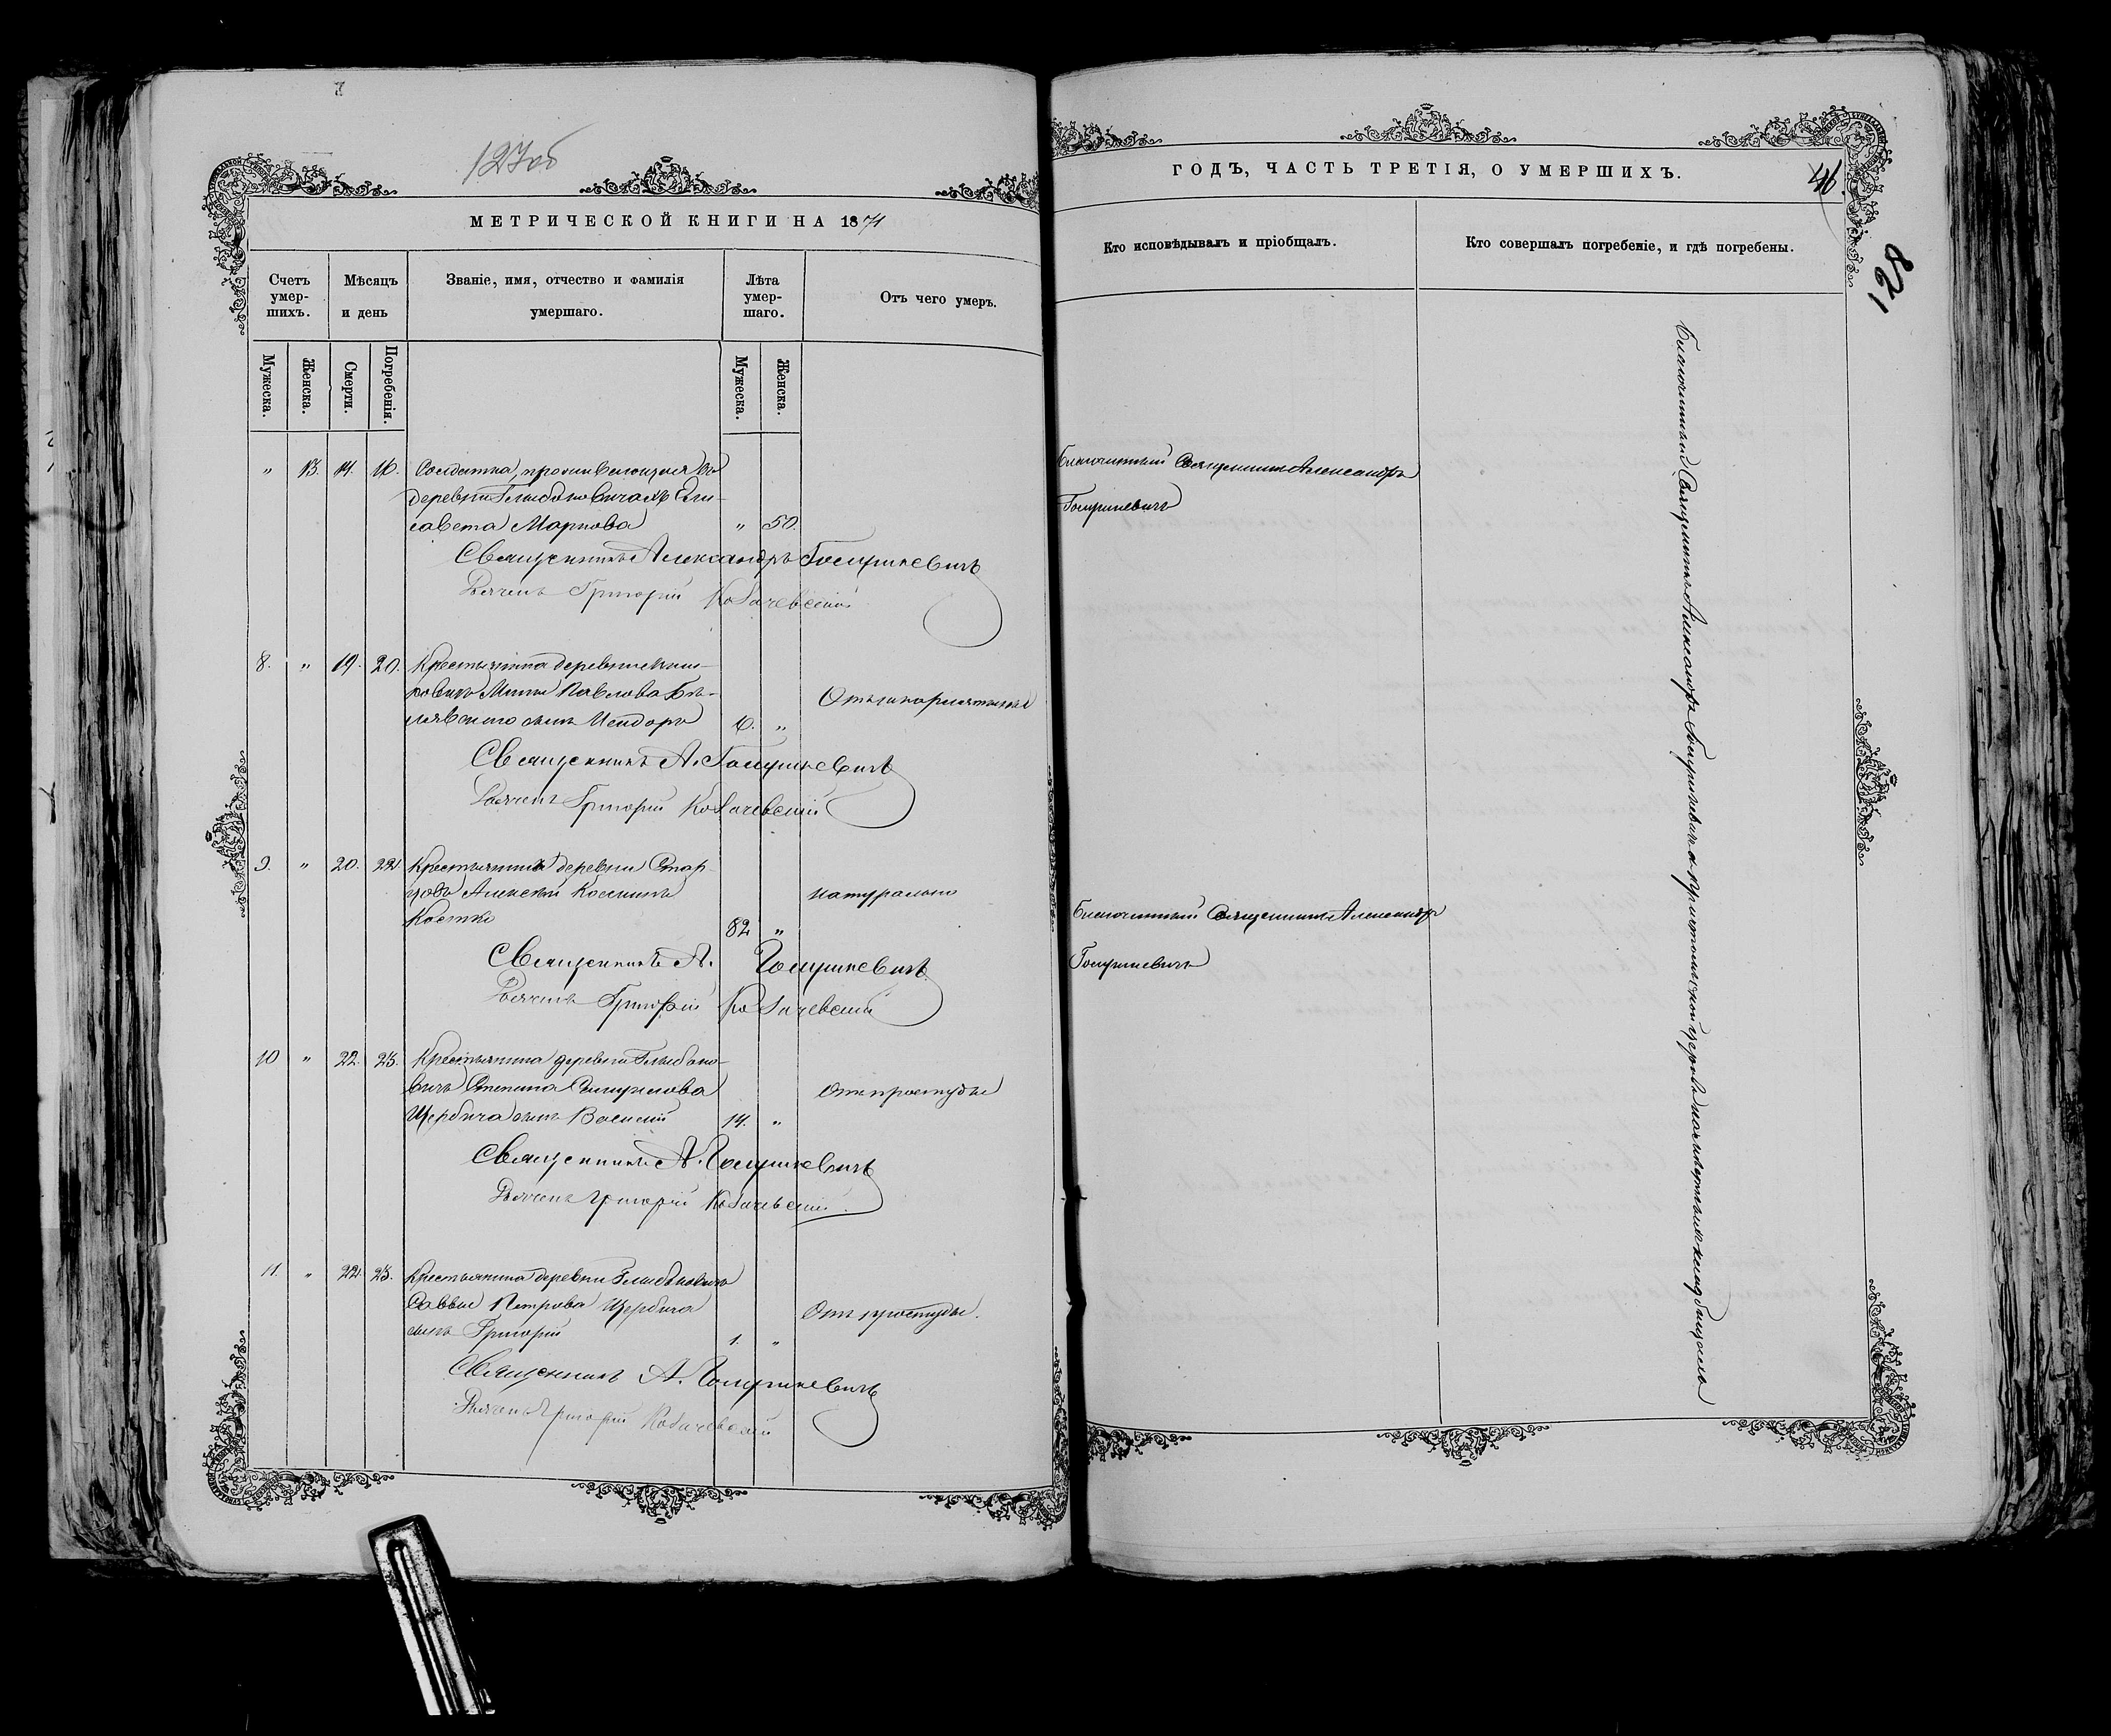 127об
МЕТРИЧЕСКОЙ КНИГИ НА 1871
Счетъ умер-шихъ.
Мѣсяцъ и день
Званіе, имя, отчество и фамилія умершаго.
Лѣта умер-шаго.
Отъ чего умеръ.
Мужеска.
Женска.
Смерти.
Погребенія.
Мужеска.
Женска.
" 13. 14. 16. Солдатка, проживающая въ
деревни Глыбоковичахъ Ели-
савета Маркова " 50.
Священникъ Александръ Голушкевичъ
Дьячекъ Григорій
8. " 19. 20. Крестьянина деревни
Павлова
сынъ Исидоръ 6. "
Священникъ А. Голушкевичъ
Дьячекъ Григорій
9. " 20. 22. Крестьянинъ деревни Стар-
Алексѣй
82 " натурально
Священникъ А. Голушкевичъ
Дьячекъ Григорій
10 " 22. 23. Крестьянина деревни Глыбоко-
вичъ Степана
Щербича сынъ Василій 14. " Отъ простуды
Священникъ А. Голушкевичъ
Дьячекъ Григорій
11. " 22. 23. Крестьянина деревни Глыбоковичъ
Саввы Петрова Щербича
сынъ Григорій 1. " Отъ простуды.
Священникъ А. Голушкевичъ
Дьячекъ Григорій
ГОДЪ, ЧАСТЬ ТРЕТІЯ, О УМЕРШИХЪ.
46
128
Кто исповѣдывалъ и пріобщалъ.
Кто совершалъ погребеніе, и гдѣ погребены.
Благочинный Священникъ Александръ
Голушкевичъ
Благочинный Священникъ Александръ
Голушкевичъ
Благочинный Священникъ Александръ Голушкевичъ на кладбищахъ